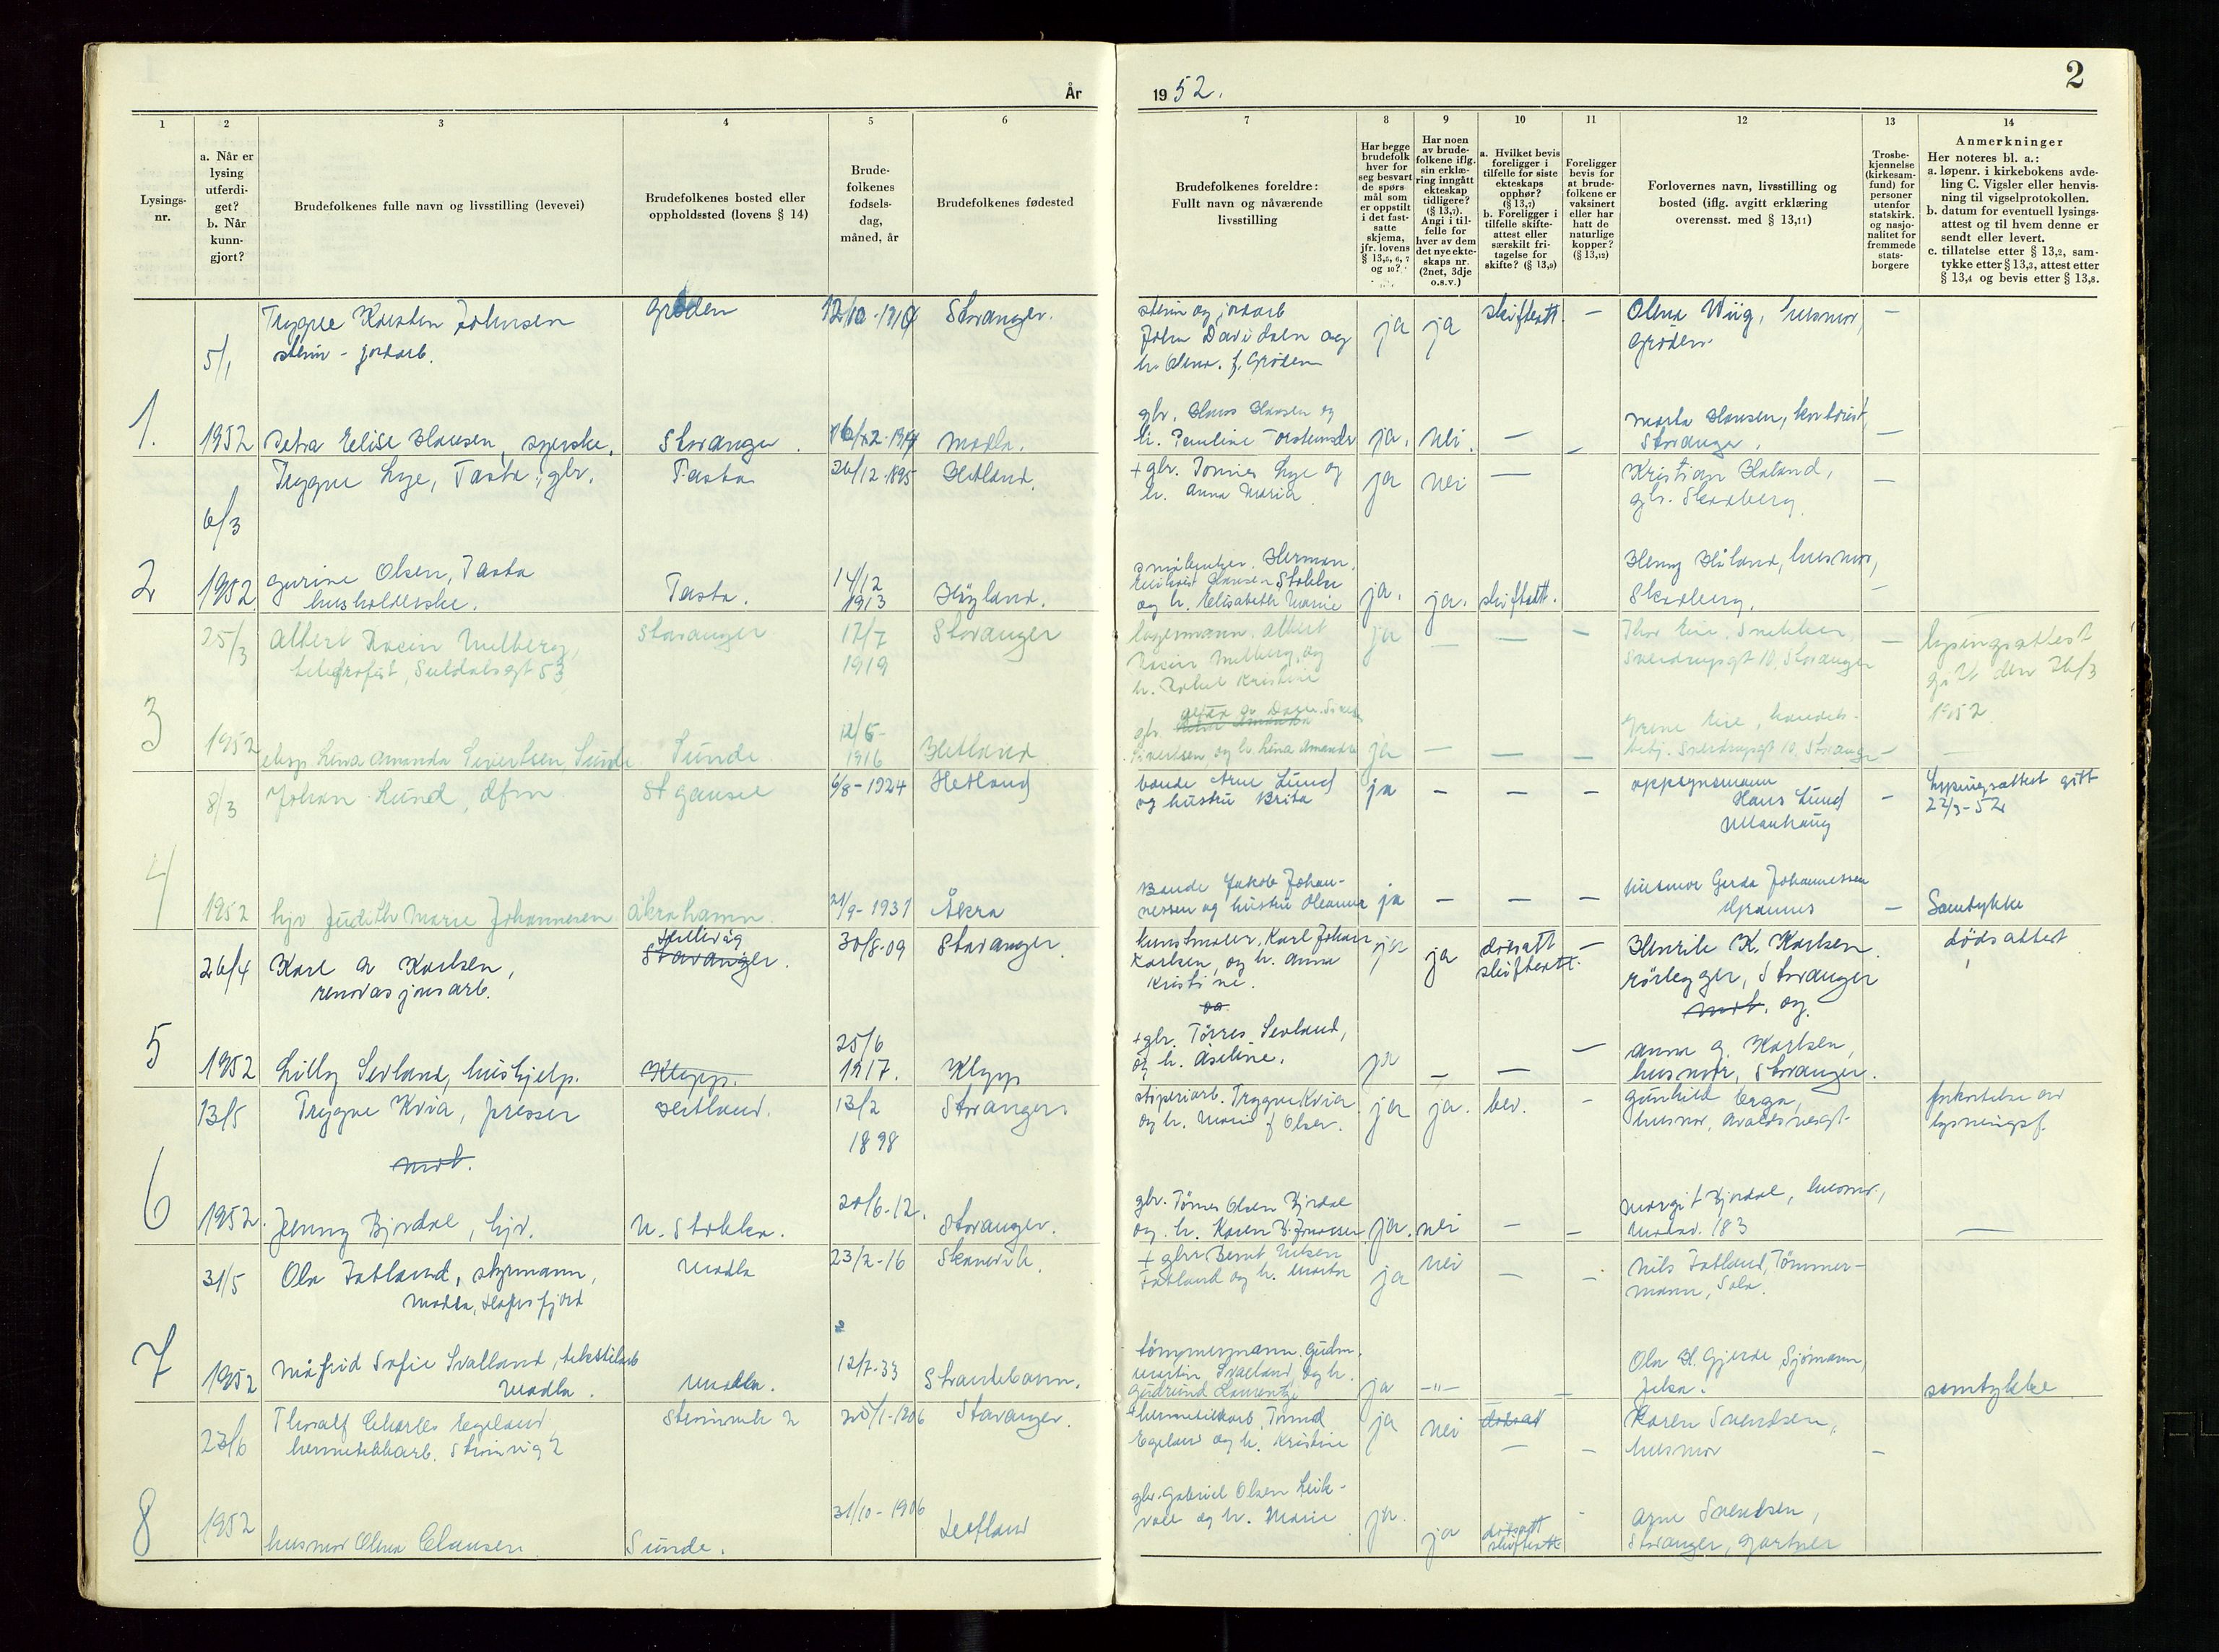 År
1952.
2
1
2
3
4
5
6
7
8
9
10
11
12
13
14
Lysings-
nr.
a. Når er
lysing
utferdi-
get?
b. Når
kunn-
gjort?
Brudefolkenes fulle navn og livsstilling (levevei)
Brudefolkenes bosted eller
oppholdssted (lovens § 14)
Brude-
folkenes
fødsels-
dag,
måned, år
Brudefolkenes fødested
Brudefolkenes foreldre:
Fullt navn og nåværende
livsstilling
Har begge
brudefolk
hver for
seg besvart
de spørs-
mål som
er oppstilt
i det fast-
satte
skjema,
jfr. lovens
§ 13,5, 6, 7
og 10?
Har noen
av brude-
folkene iflg.
sin erklæ-
ring inngått
ekteskap
tidligere?
(§ 13,7).
Angi i til-
felle for
hver av dem
det nye ekte-
skaps nr.
(2net, 3dje
o.s.v.)
a. Hvilket bevis
foreligger i
tilfelle for siste
ekteskaps
opphør?
(§ 13,7)
b. Foreligger i
tilfelle skifte-
attest eller
særskilt fri-
tagelse for
skifte? (§ 13,9)
Foreligger
bevis for
at brude-
folkene er
vaksinert
eller har
hatt de
naturlige
kopper?
(§ 13,12)
Forlovernes navn, livsstilling og
bosted (iflg. avgitt erklæring
overensst. med § 13,11)
Trosbe-
kjennelse
(kirkesam-
fund) for
personer
utenfor
statskirk.
og nasjo-
nalitet for
fremmede
stats-
borgere
Anmerkninger
Her noteres bl. a.:
a. løpenr. i kirkebokens avde-
ling C. Vigsler eller henvis-
ning til vigselprotokollen.
b. datum for eventuell lysings-
attest og til hvem denne er
sendt eller levert.
c. tillatelse etter § 13,2, sam-
tykke etter § 13,3, attest etter
§ 13,4 og bevis etter § 13,8.
1.
5/1
Trygve Karsten Johnsen
stein - jordarb.
Grøden
Stavanger.
stein og jordarb
John Davidsen og
h. Olena. f. Grøden
ja
ja
skifteatt.
-
Olena Wiig, husmor,
Grøden.
-
1952
Petra Elise Hansen, syerske.
Stavanger
Madla.
gbr. Hans Hansen og
h. Pauline
ja.
nei.
-
-
Marta Hansen, kontorist,
Stavanger.
-
2
6/3
Trygve Lye, Tasta, gbr.
Tasta
26/12-1895
Hetland.
+ gbr. Tønnes Lye og
h. Anna Maria
ja
nei
-
Kristian Håland,
gbr. Skadberg
-
1952
Gurine Olsen, Tasta
husholderske.
Tasta.
14/12
1913
Høyland.
småbruker. Herman.
Stokke
og h. Elisabeth Marie
ja.
ja.
skifteatt.
Henny Håland, husmor,
Skadberg.
-
3
25/3
Albert Melberg,
telegrafist, Suldalsgt 53
Stavanger
17/7
1919
Stavanger
lagermann. Albert
Melberg, og
h. Rakel Kristine
ja
-
-
-
Thor Eie, snekker,
Sverdrupsgt 10, Stavanger
-
lysingsattest
gitt den 26/3
1952
1952
eksp. Lina Amanda Sivertsen, Sunde
Sunde
1916
Hetland
gbr.
Sivertsen og h. Lina Amanda
ja
-
-
-
Irene Eie, handels-
betj. Sverdrupsgt 10, Stavanger
-
4
8/3
Johan Lund, Afm
St gausel
6/8-1924
Hetland
bonde Arne Lund
og hustru Brita
ja
-
-
-
oppsynsmann
Hans Lund
Ullenhaug
-
Lysingsattest gitt
22/3-52
1952
hjv Judith Marie Johannesen
Åkrahamn
21/9-1931
Åkra
Bonde Jakob Johan-
nessen og hustru Oleanna
ja
-
-
-
husmor Gerda Johannessen
Grannes
-
Samtykke
5
26/4
Karl A Karlsen,
renovasjonsarb.
Stavanger.
30/8-09
Stavanger
kunstmaler, Karl Johan
Karlsen, og h. Anna
Kristine.
ja
ja
dødsatt
skifteatt.
-
Henrik K. Karlsen.
rørlegger, Stavanger
og
dødsattest
1952
Lilly Sevland, hushjelp.
Klepp.
25/6
1917.
Klepp
+ gbr. Tørres Sevland,
og h. Aseline.
ja
-
-
-
Anna G. Karlsen,
husmor, Stavanger.
6
13/5
Trygve Kvia, presser
Hetland.
13/2
1898
Stavanger
støperiarb. Trygve Kvia
og h. Marie f Olsen.
ja
ja.
bev.
-
Gunhild Erga,
husmor, Avaldsnesgt.
forkortelse av
lysningsf.
1952.
Jenny Bjordal, hjv.
N. Stokka.
20/6-12.
Stavanger.
gbr. Tønnes Olsen Bjordal
og h. Karen
ja.
nei
-
-
Margit Bjordal, husmor,
Madlav. 183
-
7
31/5
Ola Tatland, styrmann,
Madla, Hafrsfjord
Madla
23/2-16
Skånevik.
+ gbr Bernt Nilsen
Tatland og h. Marta
ja
nei
-
-
Nils Tatland, Tømmer-
mann, Sola.
1952
Målfrid Sofie Svalland, tekstilarb
Madla.
Madla.
12/7-33
Strandebarm.
tømmermann. Gudm.
Martin Svalland, og h.
Gudrund
ja
-"-
-
Ola H. Gjerde, Sjømann,
Jelsa.
samtykke
8
23/6
Thoralf Charles Egeland
hermetikkarb. Steinvig 2
1906
Stavanger.
+ hermetikkarb, Tormod
Egeland og h. Kristine
ja
nei
dødsatt
-
-
Karen Svendsen,
husmor
-
1952
husmor Olena Clausen
Sunde.
31/10-1906
Hetland
gbr. Gabriel Olsen Leik-
voll og h. Marie
ja.
ja
dødsatt
skifteatt
-
Arne Svendsen,
Stavanger, gartner